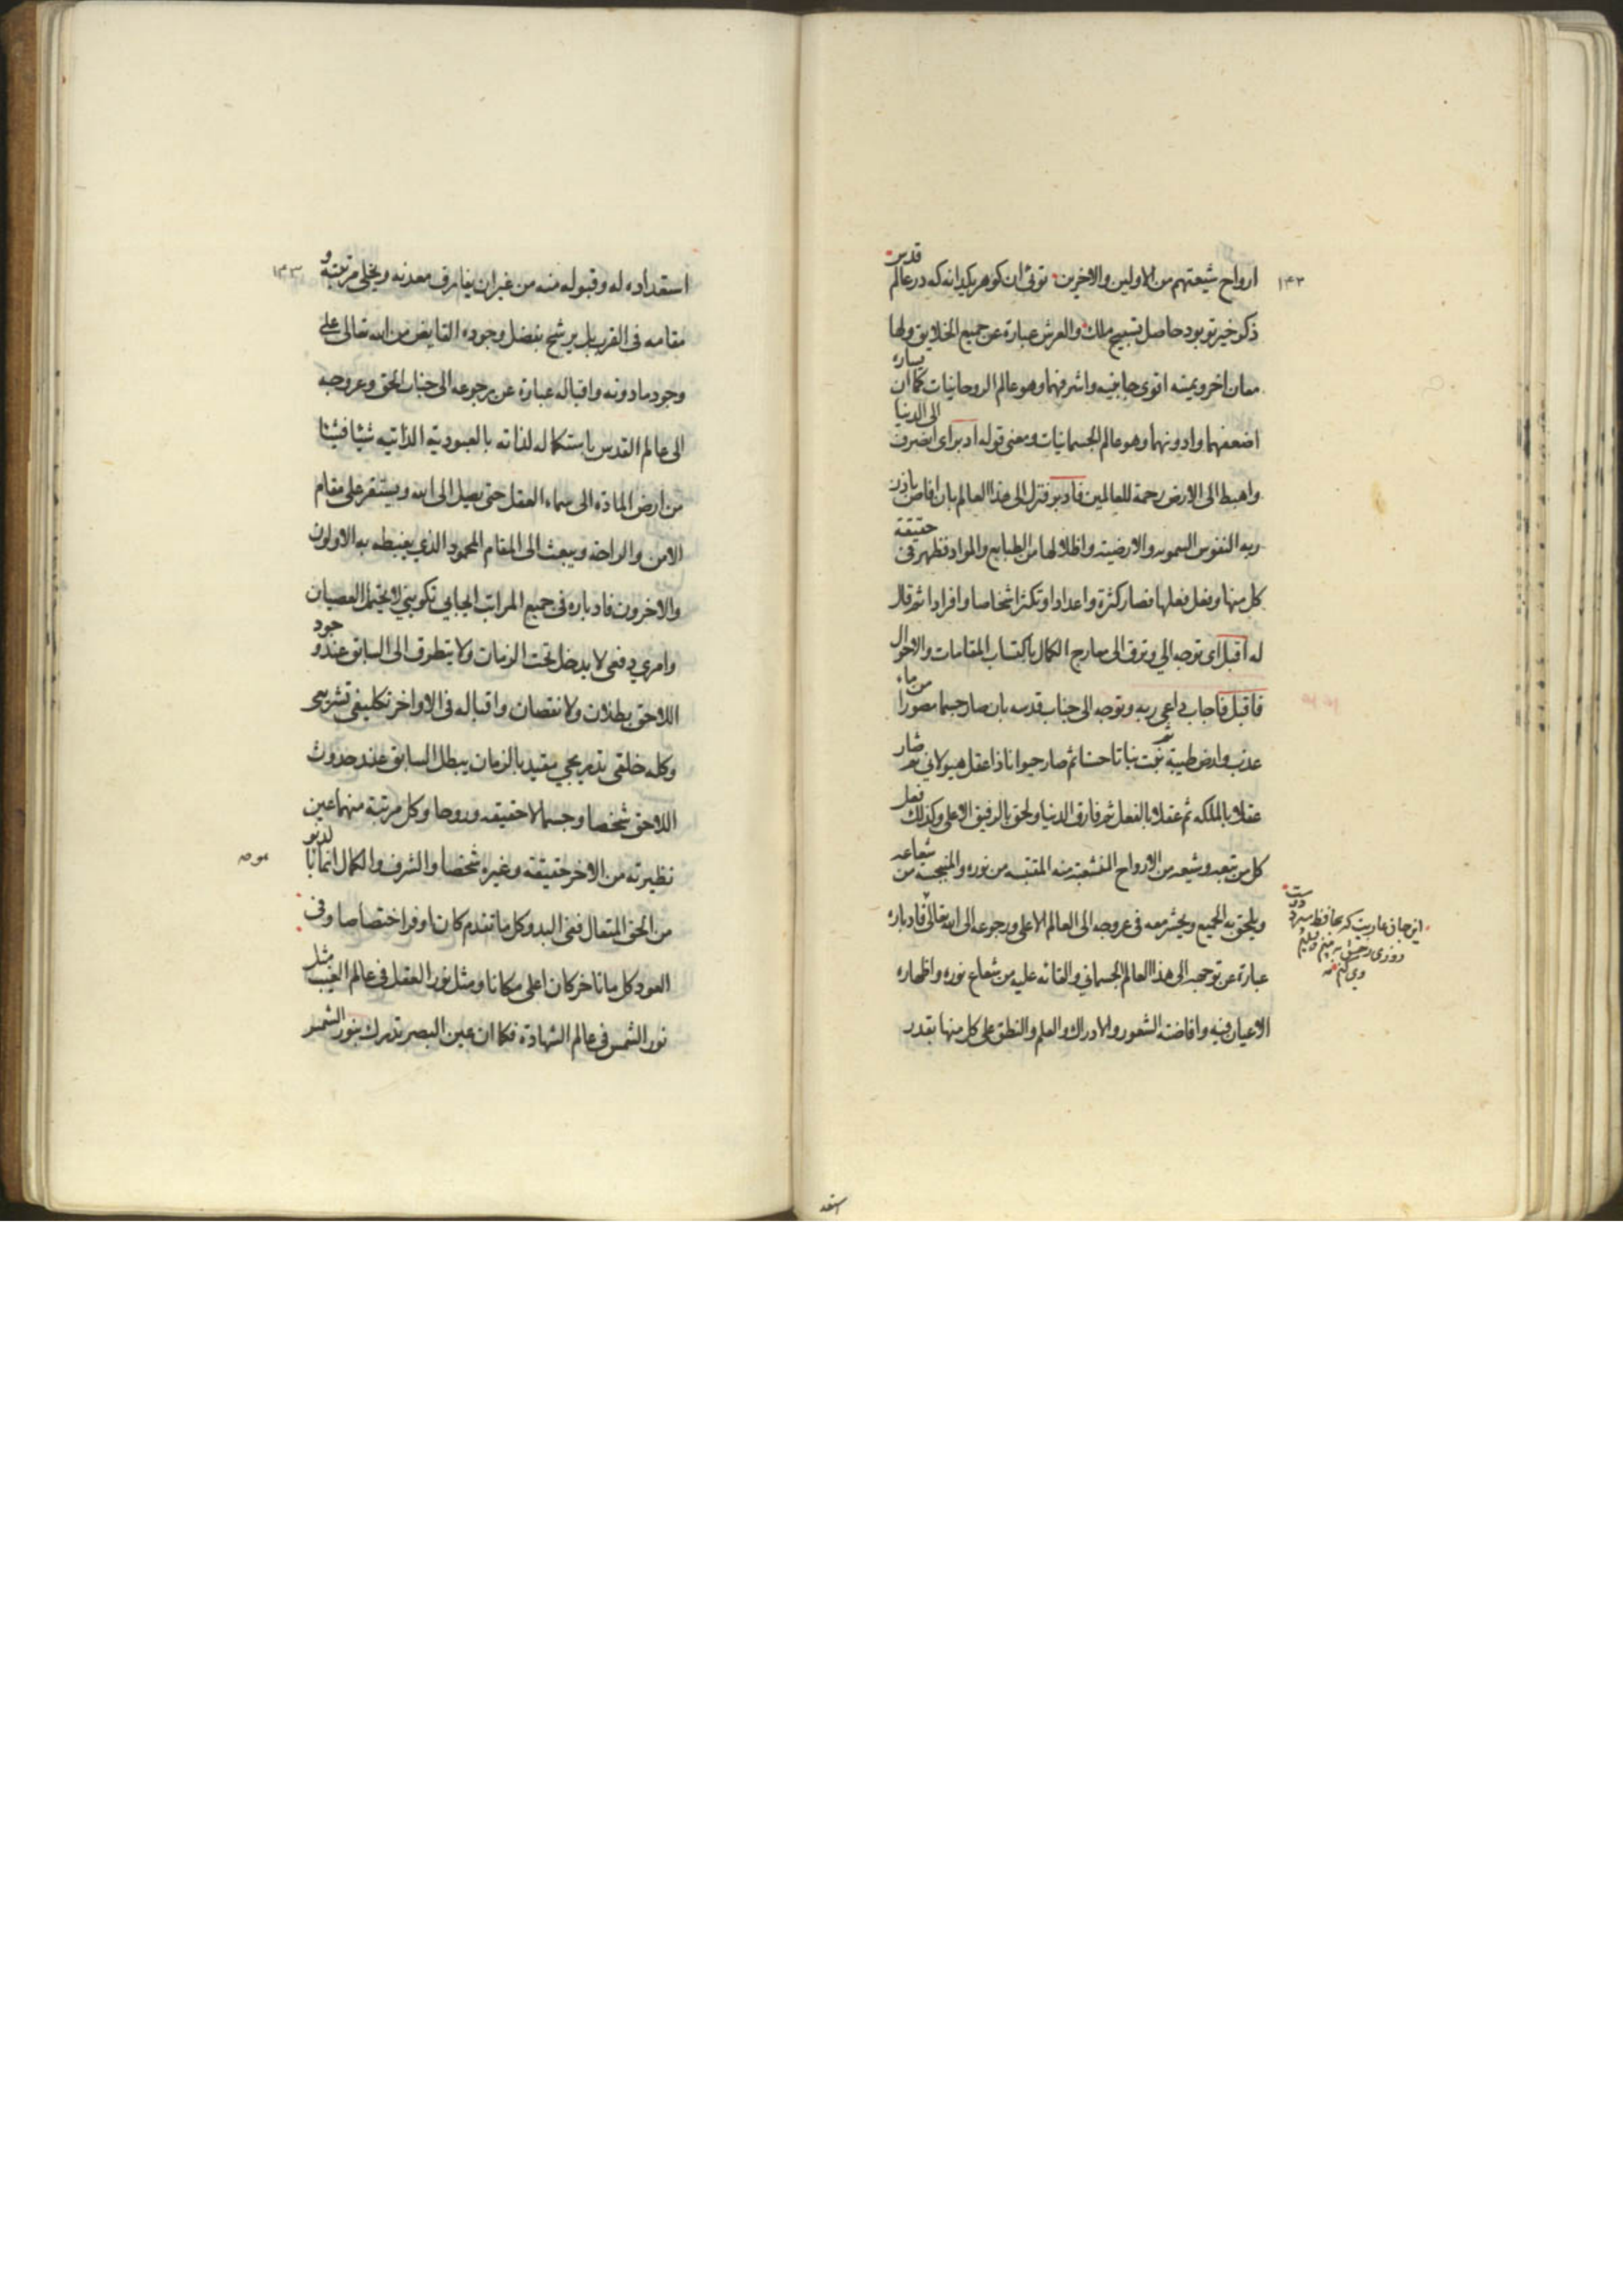 ١٤٣
ارواح شيعتهم من الاولين والاخرين توئى ان كوهر پكدانه كه در عالم قدس
ذكر خير تو بود حاصل تسبيح ملك والعرش عبارة عن جميع الخلايق ولها
معان اخر ويمينه اقوى جانبيه واشرفهما وهو عالم الروحانيات كما ان يساره
اضعفهما وادونهما وهو عالم الجسمانيات ومعنى قوله ادبر اى انصرف الى الدنيا
واهبط الى الارض رحمة للعالمين فادبر فنزل الى هذا العالم بان افاض باذن
ربه النفوس السموية والارضية واظلالها من الطبايع والمواد فظهر فى حقيقة
كل منها وفعل فعلها فصار كثرة واعدادا وتكثر اشخاصا وافرادا ثم قال
له اقبل اى توجه الي وترق الى معارج الكمال باكتساب المقامات والاحوال
فاقبل فاجاب داعي ربه وتوجه الى جناب قدسه بان صار جسما مصورا من ماء
عذب وارض طيبة ثم نبت نباتا حسنا ثم صار حيوانا ذا عقل هيولاني ثم صار
عقلا بالملكه ثم عقلا بالفعل ثم فارق الدنيا ولحق بالرفيق الاعلى وكذلك فعل
كل من تبعه وشيعه من الارواح المنشعبة منه المقتبسه من نوره والمنبجسة من شعاعه
ويلحق به الجميع ويحشر معه فى عروجه الى العالم الاعلى ورجوعه الى الله تعالى فادباره
عبارة عن توجهه الى هذا العالم الجسماني والقائه عليه من شعاع نوره واظهاره
الاعيان فيه وافاضته الشعور والادراك والعلم والنطق على كل منها بقدر
اين جان عاريت كه بحافظ سپرد دوست
روزى رخش به بينم و تسليم
وى كنم
استعد
١٤٣
استعداده له وقبوله منه من غير ان يفارق معدنه ويخلى مرتبته و
مقامه فى القرب بل يرشح بفضل وجوده الفايض من الله تعالى على
وجود ما دونه واقباله عبارة عن رجوعه الى جناب الحق وعروجه
الى عالم القدس باستكماله لذاته بالعبودية الذاتيه شيئا فشيئا
من ارض المادة الى سماء العقل حتى يصل الى الله ويستقر على مقام
الامن والراحة ويبعث الى المقام المحمود الذي يغبطه به الاولون
والاخرون فادباره فى جميع المراتب ايجابي تكويني لا يحتمل العصيان
وامري دفعى لا يدخل تحت الزمان ولا يتطرق الى السابق عند وجود
اللاحق بطلان ولا نقصان واقباله فى الاواخر تكليفي تشريعى
وكله خلقى تدريجي مقيد بالزمان يبطل السابق عند حدوث
اللاحق شخصا وجسما لا حقيقه وروحا وكل مرتبة منهما عين
نظيرته من الاخر حقيقة وغيره شخصا والشرف والكمال انما بالدنو
من الحق المتعال ففى البدو كل ما تقدم كان اوفر اختصاصا وفى
العود كل ما تاخر كان اعلى مكانا ومثل نور العقل فى عالم الغيب مثل
نور الشمس فى عالم الشهادة فكما ان عين البصر تدرك بنور الشمس